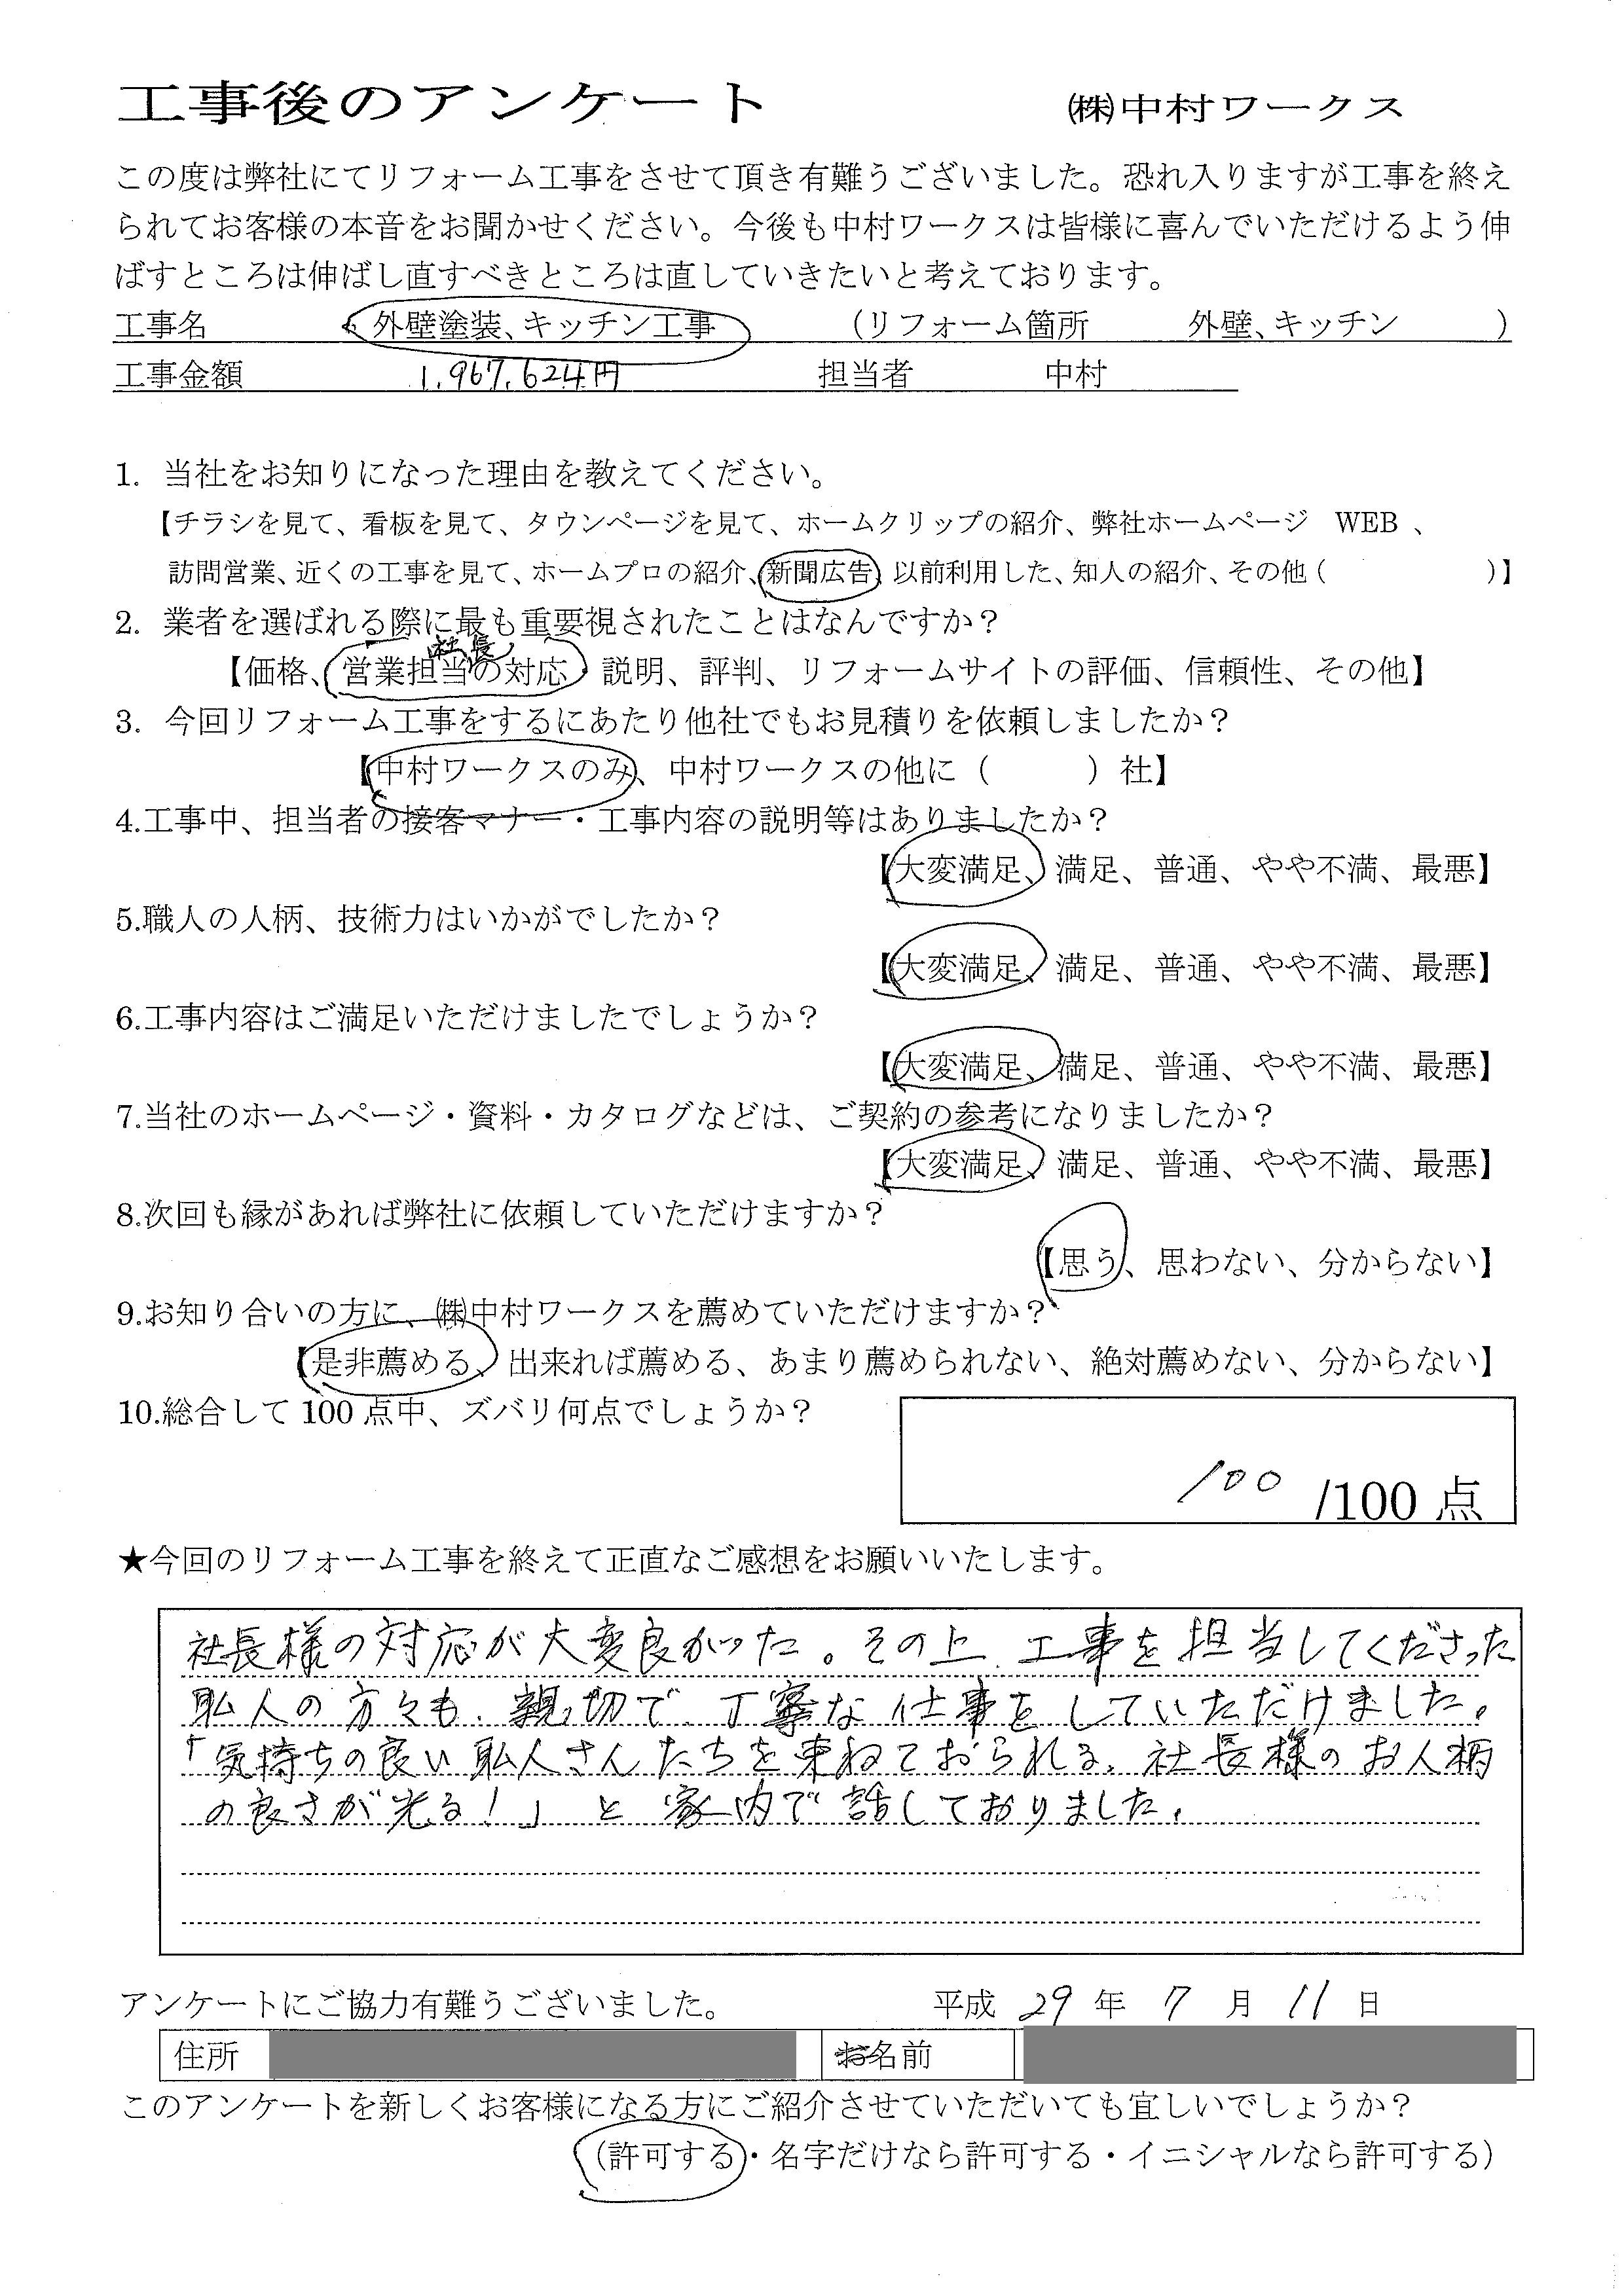 工事後のアンケート ㈱中村ワークス
この度は弊社にてリフォーム工事をさせて頂き有難うございました。恐れ入りますが工事を終え
られてお客様の本音をお聞かせください。今後も中村ワークスは皆様に喜んでいただけるよう伸
ばすところは伸ばし直すべきところは直していきたいと考えております。
工事名 外壁塗装、キッチン工事 （リフォーム箇所 外壁、キッチン ）
工事金額 1,967,624円 担当者 中村
1. 当社をお知りになった理由を教えてください。
【チラシを見て、看板を見て、タウンページを見て、ホームクリップの紹介、弊社ホームページ WEB 、
訪問営業、近くの工事を見て、ホームプロの紹介、新聞広告、以前利用した、知人の紹介、その他（ ）】
2. 業者を選ばれる際に最も重要視されたことはなんですか？
社長
【価格、営業担当の対応・説明、評判、リフォームサイトの評価、信頼性、その他】
3. 今回リフォーム工事をするにあたり他社でもお見積りを依頼しましたか？
【中村ワークスのみ、中村ワークスの他に（ ）社】
4.工事中、担当者の接客マナー・工事内容の説明等はありましたか？
【大変満足、満足、普通、やや不満、最悪】
5.職人の人柄、技術力はいかがでしたか？
【大変満足、満足、普通、やや不満、最悪】
6.工事内容はご満足いただけましたでしょうか？
【大変満足、満足、普通、やや不満、最悪】
7.当社のホームページ・資料・カタログなどは、ご契約の参考になりましたか？
【大変満足、満足、普通、やや不満、最悪】
8.次回も縁があれば弊社に依頼していただけますか？
【思う、思わない、分からない】
9.お知り合いの方に、㈱中村ワークスを薦めていただけますか？
【是非薦める、出来れば薦める、あまり薦められない、絶対薦めない、分からない】
10.総合して 100 点中、ズバリ何点でしょうか？
100 /100 点
★今回のリフォーム工事を終えて正直なご感想をお願いいたします。
社長様の対応が大変良かった。その上、工事を担当してくださった
職人の方々も、親切で、丁寧な仕事をしていただけました。
「気持ちの良い職人さんたちを束ねておられる、社長様のお人柄
の良さが光る！」と家内で話しておりました。
アンケートにご協力有難うございました。 平成 29 年 7 月 11 日
住所 お名前
このアンケートを新しくお客様になる方にご紹介させていただいても宜しいでしょうか？
（許可する・名字だけなら許可する・イニシャルなら許可する）